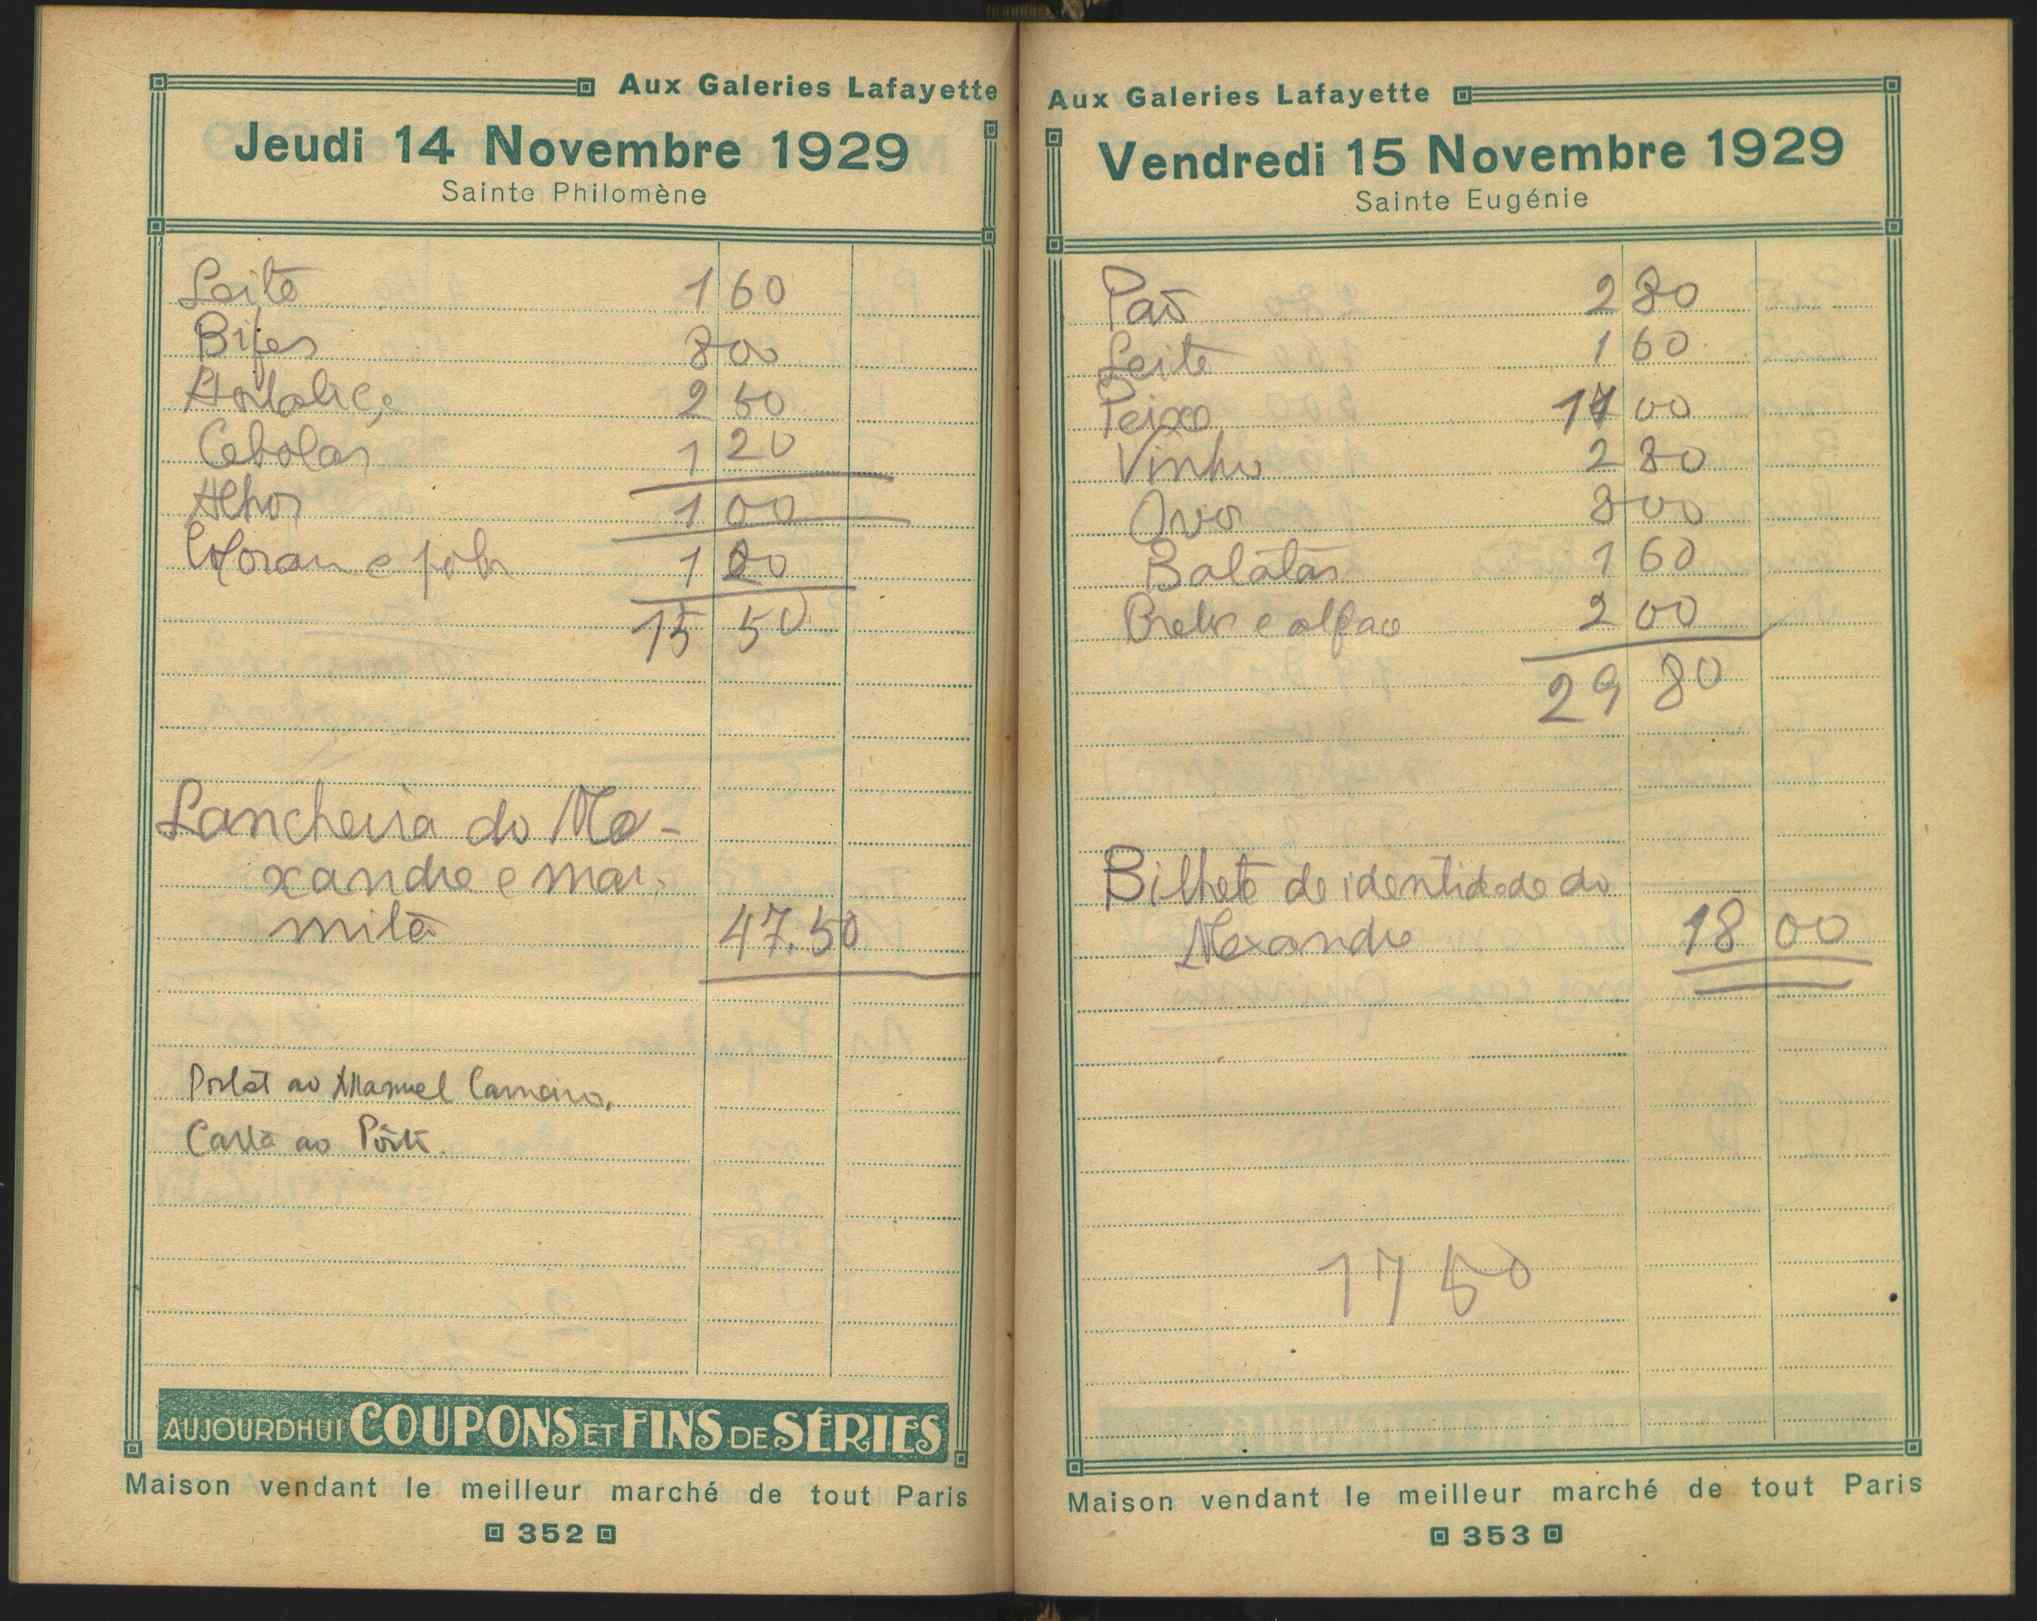 Aux Galeries Lafayette
Jeudi 14 Novembre 1929
Sainte Philomène
Leite 1 60
Bifes 8 00
Hortaliça 2 50
Cebolas 1 20
Alhos 1 00
e 1 00
15 50
Lancheira do Ale-
xandre e mar-
mita 47.50
Postal ao Manuel Carneiro.
Carta ao Pôrto.
AUJOURDHUI COUPONS ET FINS DE SÉRIES
Maison vendant le meilleur marché de tout Paris
352
Aux Galeries Lafayette
Vendredi 15 Novembre 1929
Sainte Eugénie
Pão 2 80
Leite 1 60
Peixe 11 00
Vinho 2 80
Ovos 8 00
Batatas 1 60
e 2 00
29 80
Bilhete de identidade do
Alexandre 18 00
17 50
Maison vendant le meilleur marché de tout Paris
353